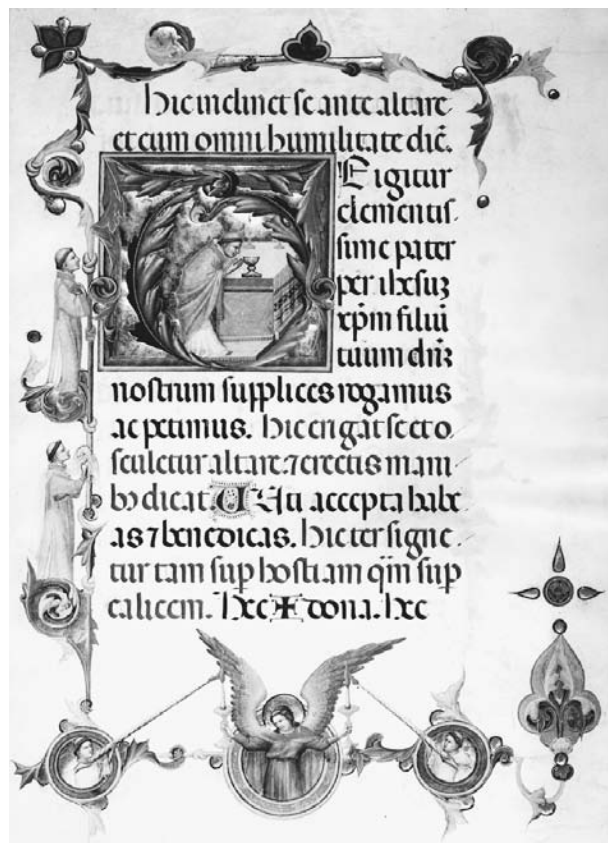 hic inclinet se ante altare
et cum omni humilitate dic̄.
E igitur
clementis
sime pater
per ihesuȝ
xp̄m filiū
tuum dn̄ȝ
nostrum supplices rogamus
ac petimus. hic erigat se et o
sculetur altare. ⁊ erectis mani
bꝫ dicat Uti accepta habe
as ⁊ benedicas. hic ter signe
tur tam sup̱ hostiam qm̄ sup̱
calicem. hec ✠ dona. hec